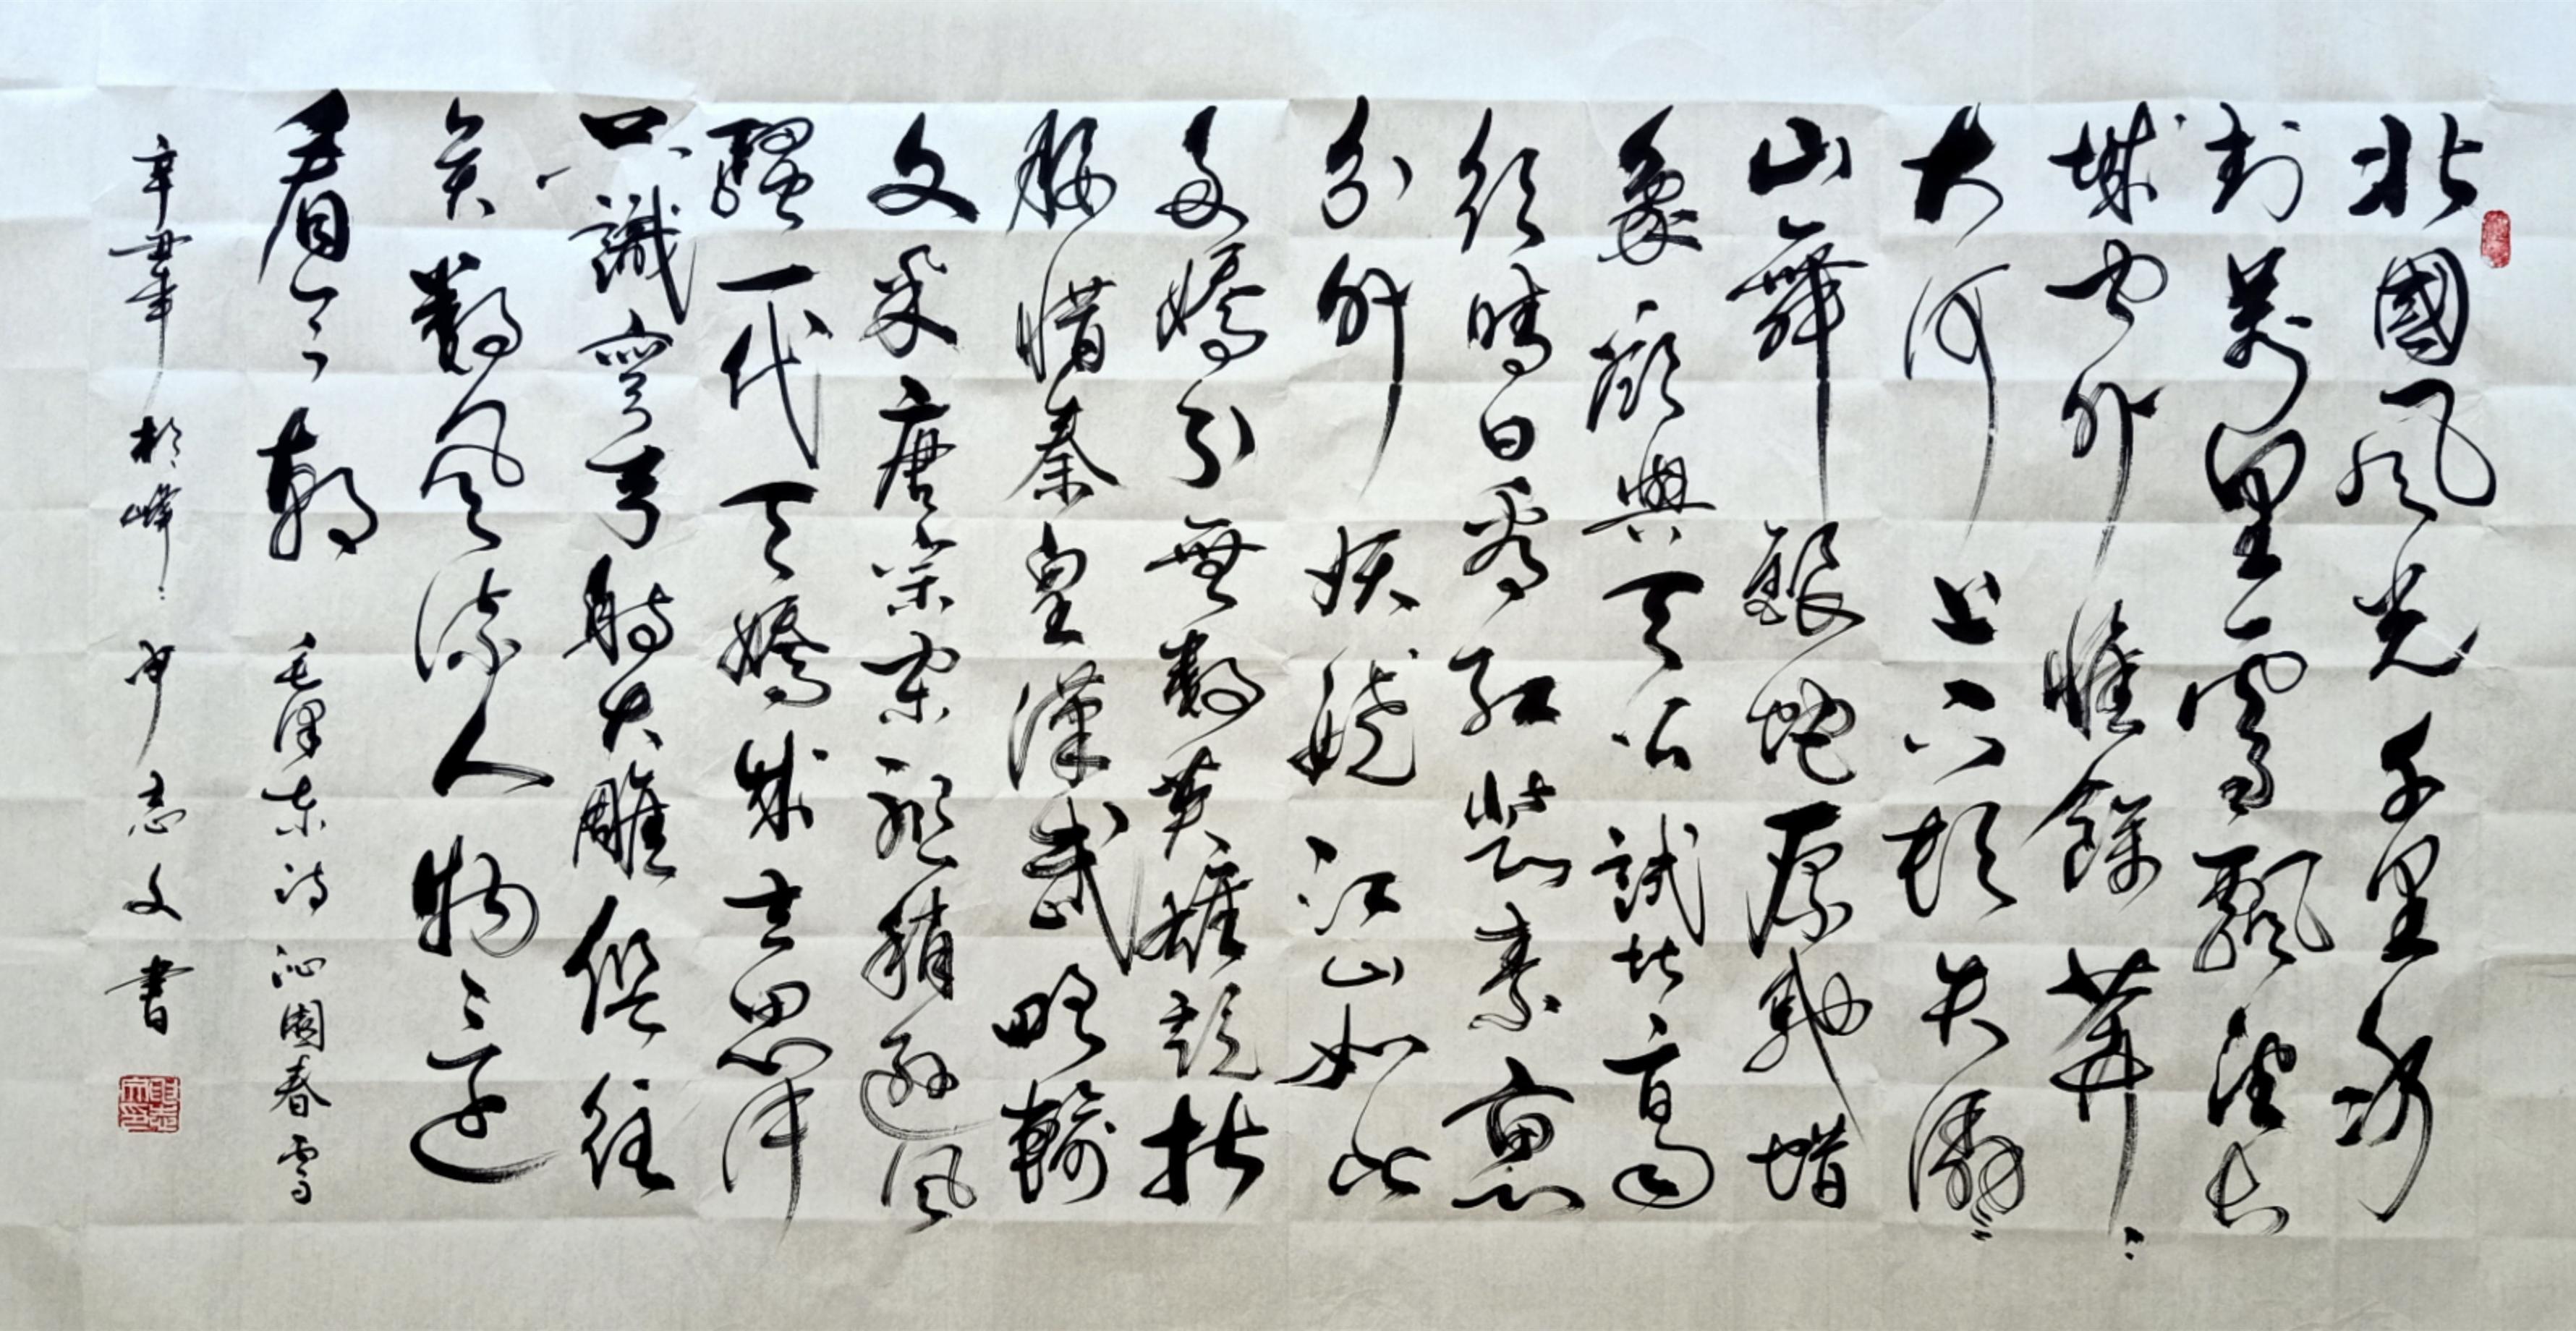 北國風光千里冰
封萬里雪飄望長
城内外惟餘莽〻
大河上下頓失滔〻
山舞銀蛇原馳蜡
象欲與天公試比高
須晴日看紅裝素裹
分外妖嬈江山如此
多嬌引無數英雄競折
腰惜秦皇漢武略輸
文采唐宗宋祖稍遜風
騷一代天嬌成吉思汗
只識彎弓射大雕俱往
矣數風流人物〻還
看今朝 毛澤東詩沁園春雪
辛丑年於峰〻申志文書
申志文印